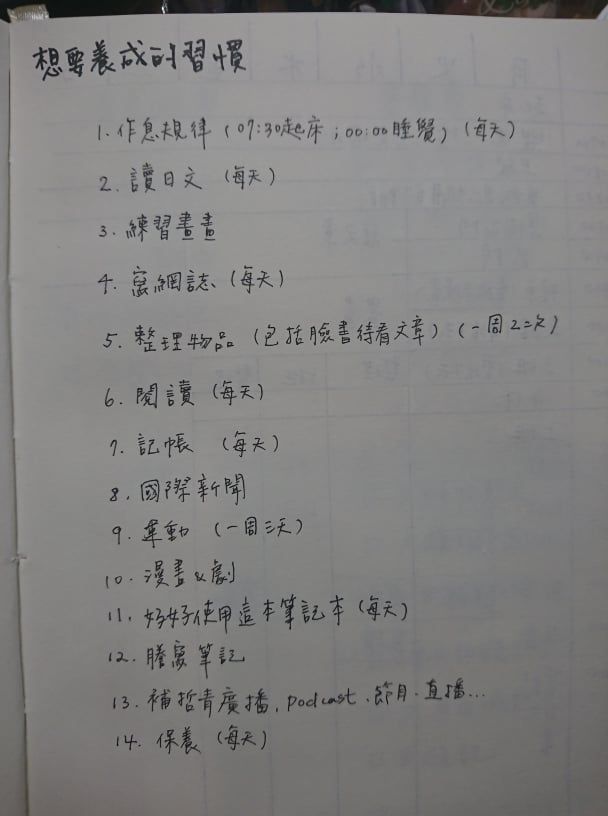 想要養成的習慣
1. 作息規律 (07:30起床;00:00睡覺) (每天)
2. 讀日文 (每天)
3. 練習畫畫
4. 寫網誌、(每天)
5. 整理物品 (包括臉書待看文章) (一周2二次)
6. 閱讀 (每天)
7. 記帳 (每天)
8. 國際新聞
9. 運動 (一周三天)
10. 漫畫&劇
11. 好好使用這本筆記本 (每天)
12. 謄寫筆記
13. 補哲青廣播, podcast、節目、直播...
14. 保養 (每天)